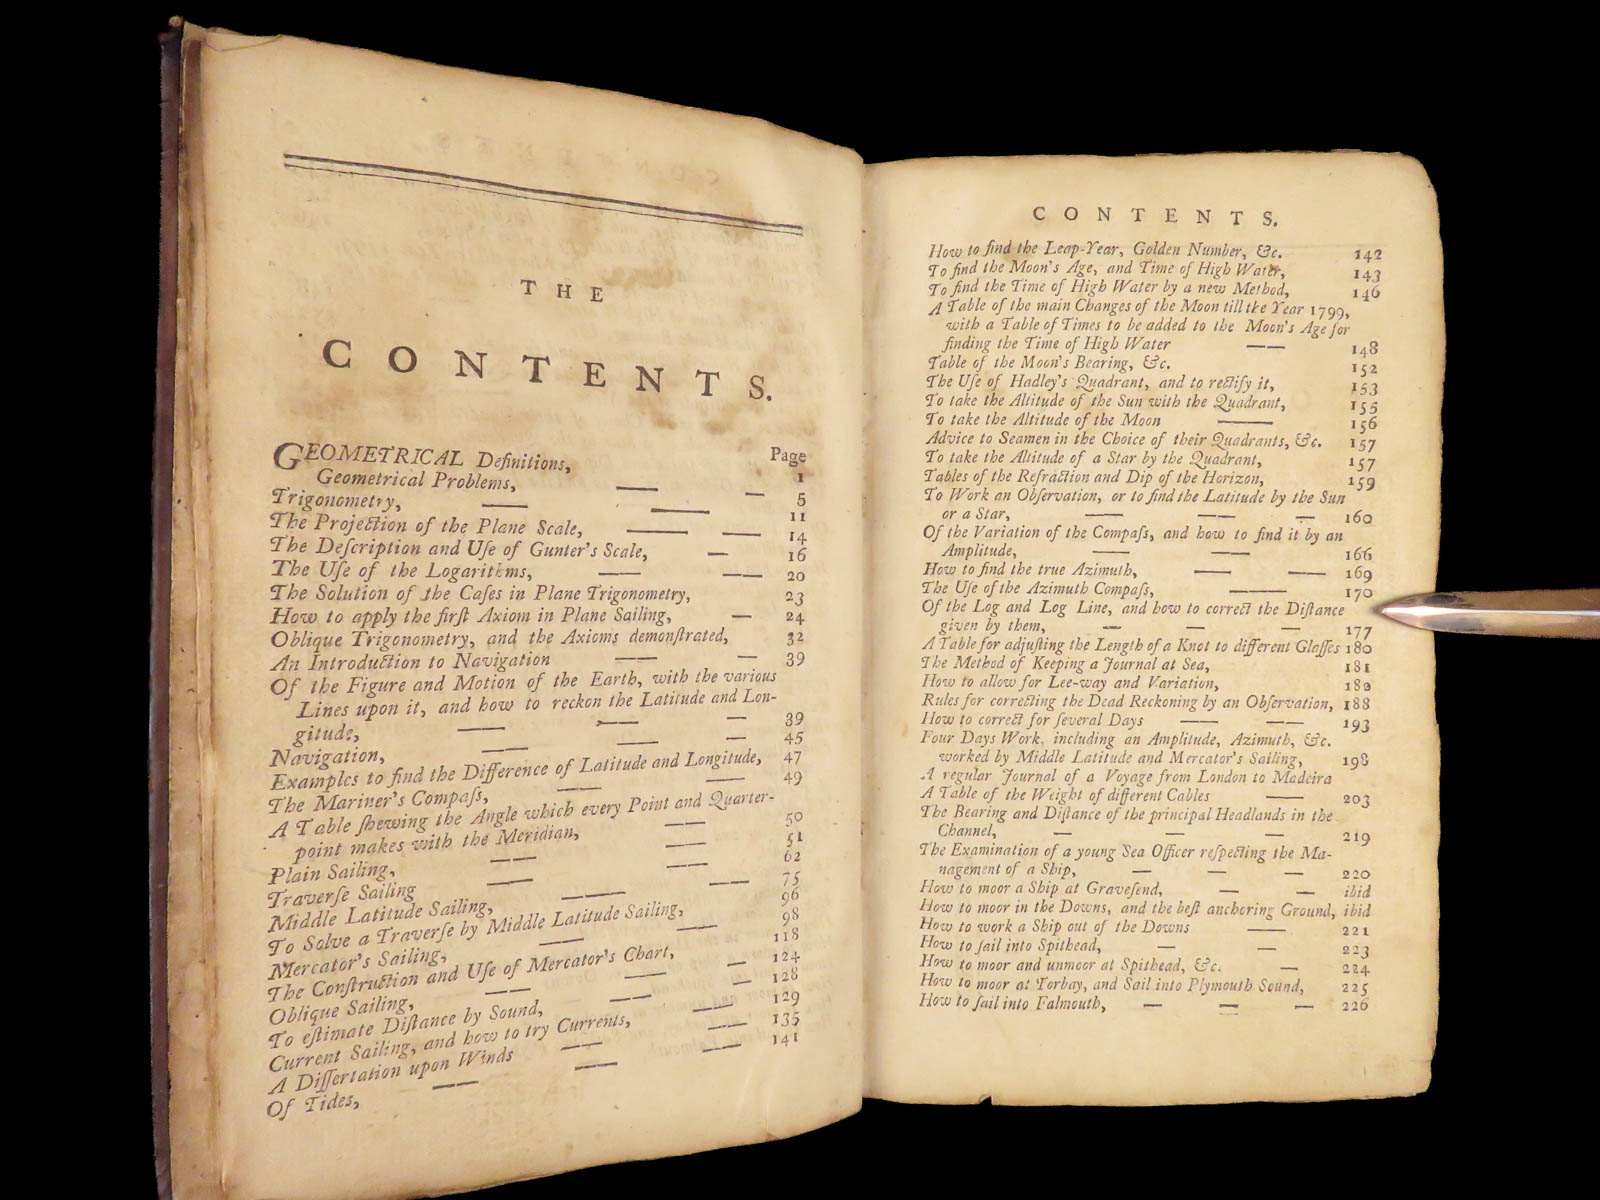 THE
CONTENTS.
Page
GEOMETRICAL Definitions, 1
Geometrical Problems, — — 5
Trigonometry, — — 11
The Projection of the Plane Scale, — — 14
The Deſcription and Uſe of Gunter's Scale, — 16
The Uſe of the Logarithms, — — 20
The Solution of the Caſes in Plane Trigonometry, 23
How to apply the firſt Axiom in Plane Sailing, — 24
Oblique Trigonometry, and the Axioms demonſtrated, 32
An Introduction to Navigation — — 39
Of the Figure and Motion of the Earth, with the various
Lines upon it, and how to reckon the Latitude and Lon-
gitude, — — — 39
Navigation, — — — 45
Examples to find the Difference of Latitude and Longitude, 47
The Mariner's Compaſs, — — 49
A Table ſhewing the Angle which every Point and Quarter-
point makes with the Meridian, — 50
Plain Sailing, — — 51
Traverſe Sailing — — 62
Middle Latitude Sailing, — — 75
To Solve a Traverſe by Middle Latitude Sailing, 96
Mercator's Sailing, — — 98
The Conſtruction and Uſe of Mercator's Chart, 118
Oblique Sailing, — — — 124
To eſtimate Diſtance by Sound, — — 128
Current Sailing, and how to try Currents, — 129
A Diſſertation upon Winds — — 135
Of Tides, — — — 141
CONTENTS.
How to find the Leap-Year, Golden Number, &c. 142
To find the Moon's Age, and Time of High Water, 143
To find the Time of High Water by a new Method, 146
A Table of the main Changes of the Moon till the Year 1799,
with a Table of Times to be added to the Moon's Age for
finding the Time of High Water — 148
Table of the Moon's Bearing, &c. 152
The Uſe of Hadley's Quadrant, and to rectify it, 153
To take the Altitude of the Sun with the Quadrant, 155
To take the Altitude of the Moon — 156
Advice to Seamen in the Choice of their Quadrants, &c. 157
To take the Altitude of a Star by the Quadrant, 157
Tables of the Refraction and Dip of the Horizon, 159
To Work an Obſervation, or to find the Latitude by the Sun
or a Star, — — — 160
Of the Variation of the Compaſs, and how to find it by an
Amplitude, — — 166
How to find the true Azimuth, — — 169
The Uſe of the Azimuth Compaſs, — 170
Of the Log and Log Line, and how to correct the Diſtance
given by them, — — — 177
A Table for adjuſting the Length of a Knot to different Glaſſes 180
The Method of Keeping a Journal at Sea, 181
How to allow for Lee-way and Variation, 182
Rules for correcting the Dead Reckoning by an Obſervation, 188
How to correct for ſeveral Days — — 193
Four Days Work, including an Amplitude, Azimuth, &c.
worked by Middle Latitude and Mercator's Sailing, 198
A regular Journal of a Voyage from London to Madeira
A Table of the Weight of different Cables — 203
The Bearing and Diſtance of the principal Headlands in the
Channel, — — — 219
The Examination of a young Sea Officer reſpecting the Ma-
nagement of a Ship, — — — 220
How to moor a Ship at Graveſend, — — ibid
How to moor in the Downs, and the beſt anchoring Ground, ibid
How to work a Ship out of the Downs — 221
How to ſail into Spithead, — — 223
How to moor and unmoor at Spithead, &c. — 224
How to moor at Torbay, and Sail into Plymouth Sound, 225
How to ſail into Falmouth, — — — 226